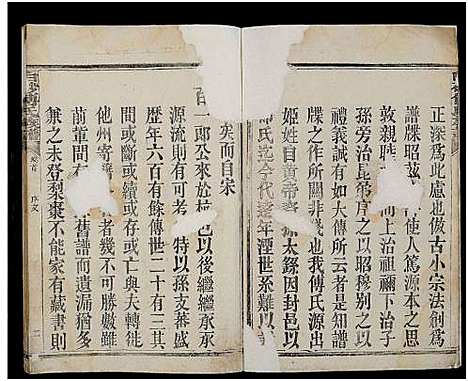 正深爲此慮也做古小宗法創爲
譜牒昭茲
使人篤源本之
敦親睦之
而上治祖禰下治子
孫旁治昆弟序之以昭穆別之以
禮義誠有如大傳所云者是以
牒之作所關非淺我傅氏源出
姬姓自黃帝裔孫大繇因封邑以
氏迄今代遠年湮世系難以
矣而自宋
百一郎公來於
邑以後繼繼承承
源流則可
特以孫支蕃盛
歷年六百有餘傳世二十有三其
間或斷或續或存或亡與夫轉徙
他州寄
者幾不可勝數雖
前輩間
舊譜而遺漏猶多
兼之未登梨棗不能家有藏書則
卷首
序文